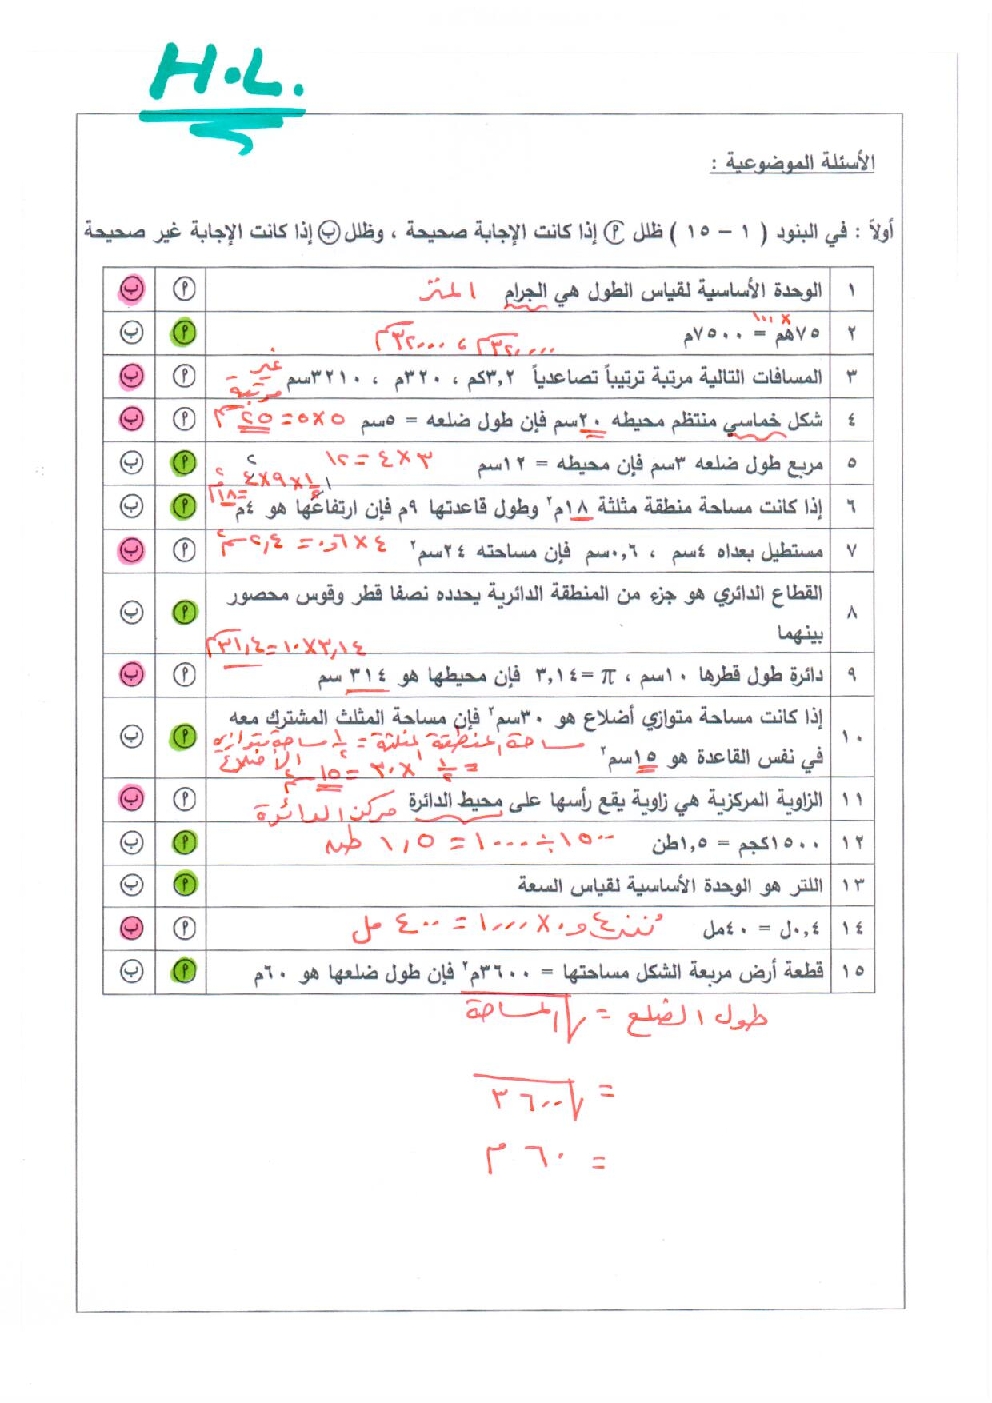 H.L.
الأسئلة الموضوعية :
أولاً : في البنود ( ١ – ١٥ ) ظلل م إذا كانت الإجابة صحيحة ، وظلل ب إذا كانت الإجابة غير صحيحة
١ الوحدة الأساسية لقياس الطول هي الجرام المتر م ب
× ١٠٠
٢ ٧٥هم = ٧٥٠٠م م ب
٣٢٠٠٠٠سم ، ٣٢٠٠٠سم
٣ المسافات التالية مرتبة ترتيباً تصاعدياً ٣,٢كم ، ٣٢٠م ، ٣٢١٠سم غير مرتبة م ب
٤ شكل خماسي منتظم محيطه ٢٠سم فإن طول ضلعه = ٥سم ٥×٥=٢٥سم م ب
٥ مربع طول ضلعه ٣سم فإن محيطه = ١٢سم ٣×٤=١٢ م ب
١/٢×٩×٤
=١٨م٢
٦ إذا كانت مساحة منطقة مثلثة ١٨م٢ وطول قاعدتها ٩م فإن ارتفاعها هو ٤م م ب
٧ مستطيل بعداه ٤سم ، ٠,٦سم فإن مساحته ٢٤سم٢ ٤×٠,٦=٢,٤سم٢ م ب
٨ القطاع الدائري هو جزء من المنطقة الدائرية يحدده نصفا قطر وقوس محصور
بينهما م ب
٣,١٤×١٠=٣١,٤سم
٩ دائرة طول قطرها ١٠سم ، π=٣,١٤ فإن محيطها هو ٣١٤ سم م ب
١٠ إذا كانت مساحة متوازي أضلاع هو ٣٠سم٢ فإن مساحة المثلث المشترك معه
مساحة المنطقة المثلثة = ١/٢ مساحة متوازي الأضلاع
في نفس القاعدة هو ١٥سم٢ م ب
= ١/٢ × ٣٠ = ١٥سم٢
١١ الزاوية المركزية هي زاوية يقع رأسها على محيط الدائرة مركز الدائرة م ب
١٢ ١٥٠٠كجم = ١,٥طن ١٥٠٠ ÷ ١٠٠٠ = ١,٥ طن م ب
١٣ اللتر هو الوحدة الأساسية لقياس السعة م ب
١٤ ٠,٤ل = ٤٠مل ٠,٤ × ١٠٠٠ = ٤٠٠ مل م ب
١٥ قطعة أرض مربعة الشكل مساحتها = ٣٦٠٠م٢ فإن طول ضلعها هو ٦٠م م ب
طول الضلع = √المساحة
= √٣٦٠٠
= ٦٠ م